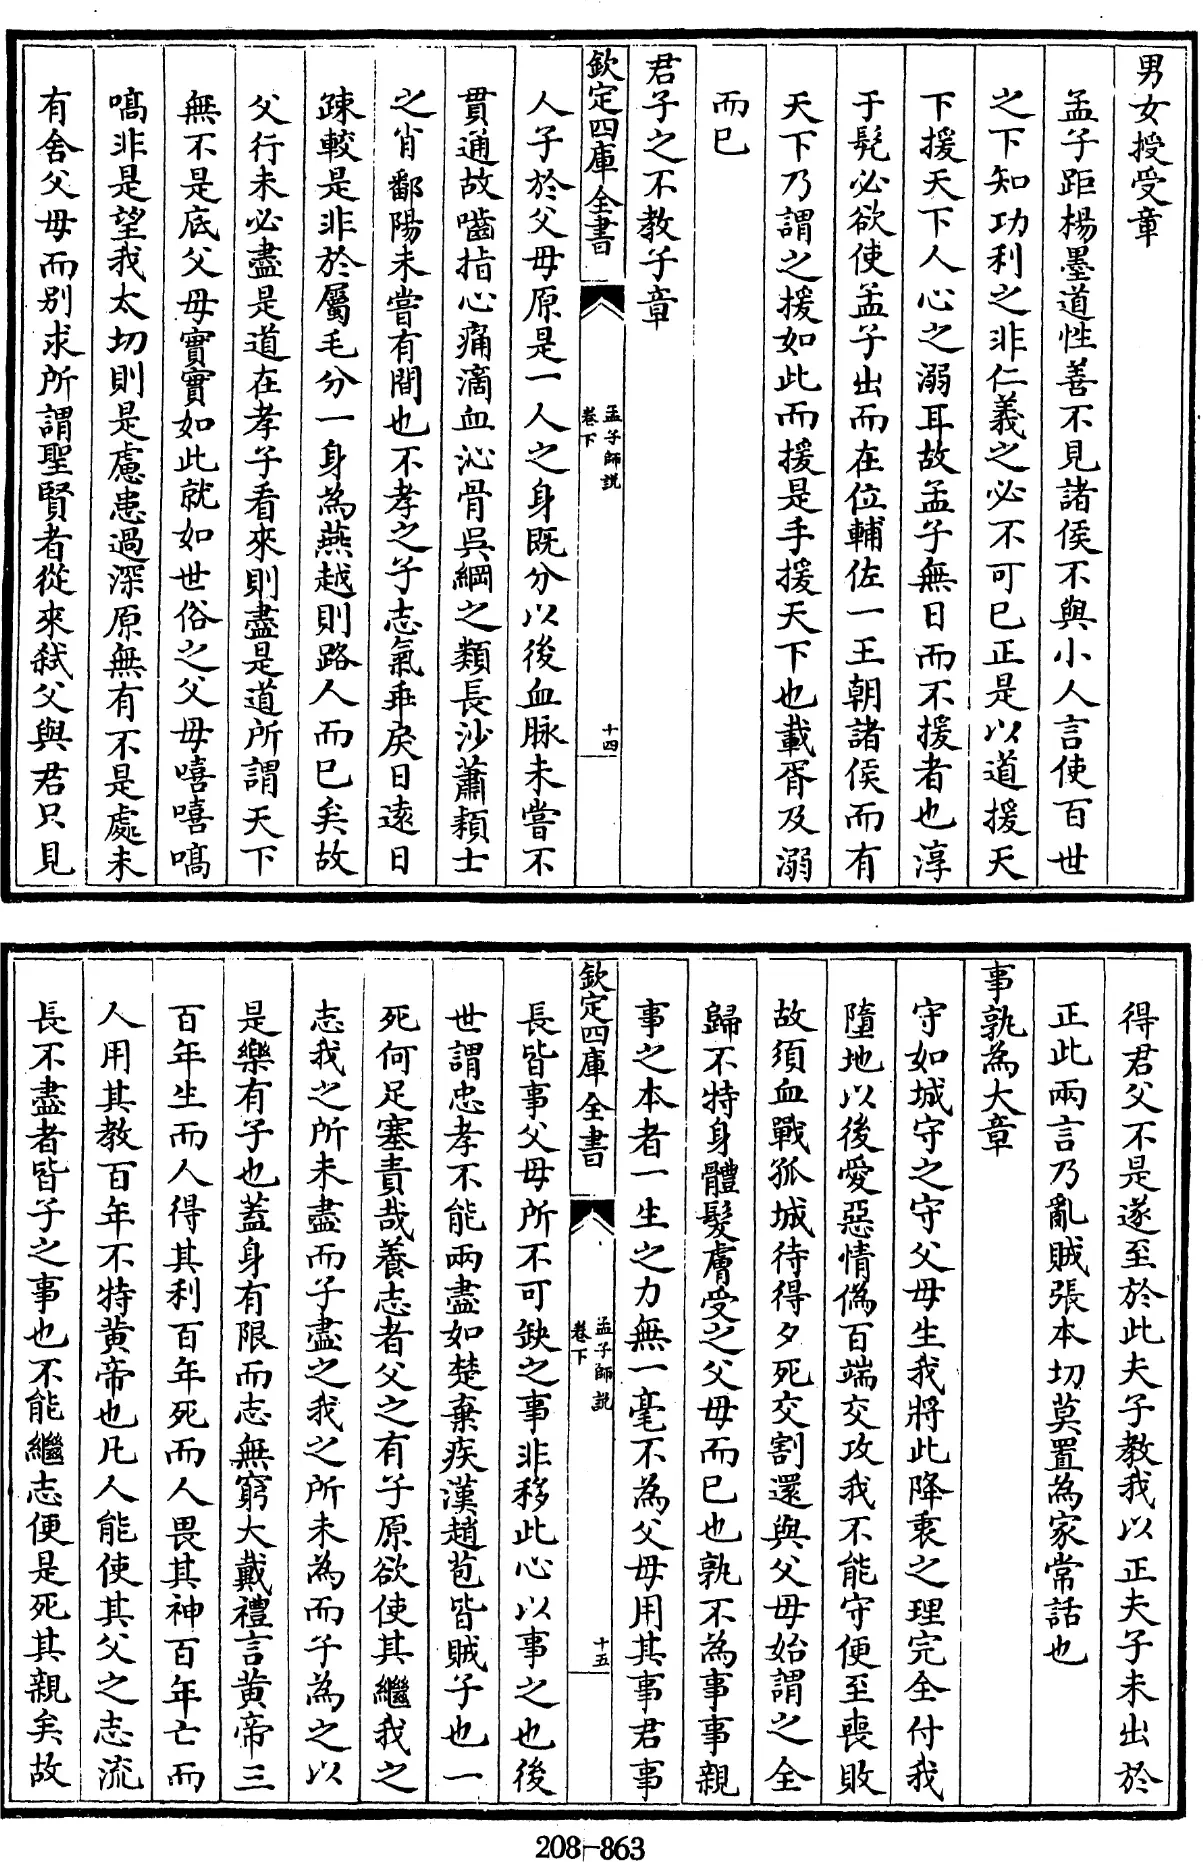 男女授受章
孟子距楊墨道性善不見諸侯不與小人言使百世
之下知功利之非仁義之必不可已正是以道援天
下援天下人心之溺耳故孟子無日而不援者也淳
于髡必欲使孟子出而在位輔佐一王朝諸侯而有
天下乃謂之援如此而援是手援天下也載胥及溺
而已
君子之不教子章
欽定四庫全書
孟子師說
卷下
十四
人子於父母原是一人之身既分以後血脉未嘗不
貫通故嚙指心痛滴血沁骨吳綱之類長沙蕭穎士
之肖鄱陽未嘗有間也不孝之子志氣乖戾日遠日
疎較是非於屬毛分一身為燕越則路人而已矣故
父行未必盡是道在孝子看來則盡是道所謂天下
無不是底父母實實如此就如世俗之父母嘻嘻嗃
嗃非是望我太切則是慮患過深原無有不是處未
有舍父母而别求所謂聖賢者從來弑父與君只見
得君父不是遂至於此夫子教我以正夫子未出於
正此兩言乃亂賊張本切莫置為家常話也
事孰為大章
守如城守之守父母生我將此降衷之理完全付我
墮地以後愛惡情偽百端交攻我不能守便至喪敗
故須血戰孤城待得夕死交割還與父母始謂之全
歸不特身體髮膚受之父母而已也孰不為事事親
事之本者一生之力無一毫不為父母用其事君事
欽定四庫全書
孟子師說
卷下
十五
長皆事父母所不可缺之事非移此心以事之也後
世謂忠孝不能兩盡如楚棄疾漢趙苞皆賊子也一
死何足塞責哉養志者父之有子原欲使其繼我之
志我之所未盡而子盡之我之所未為而子為之以
是樂有子也蓋身有限而志無窮大戴禮言黄帝三
百年生而人得其利百年死而人畏其神百年亡而
人用其教百年不特黄帝也凡人能使其父之志流
長不盡者皆子之事也不能繼志便是死其親矣故
208-863